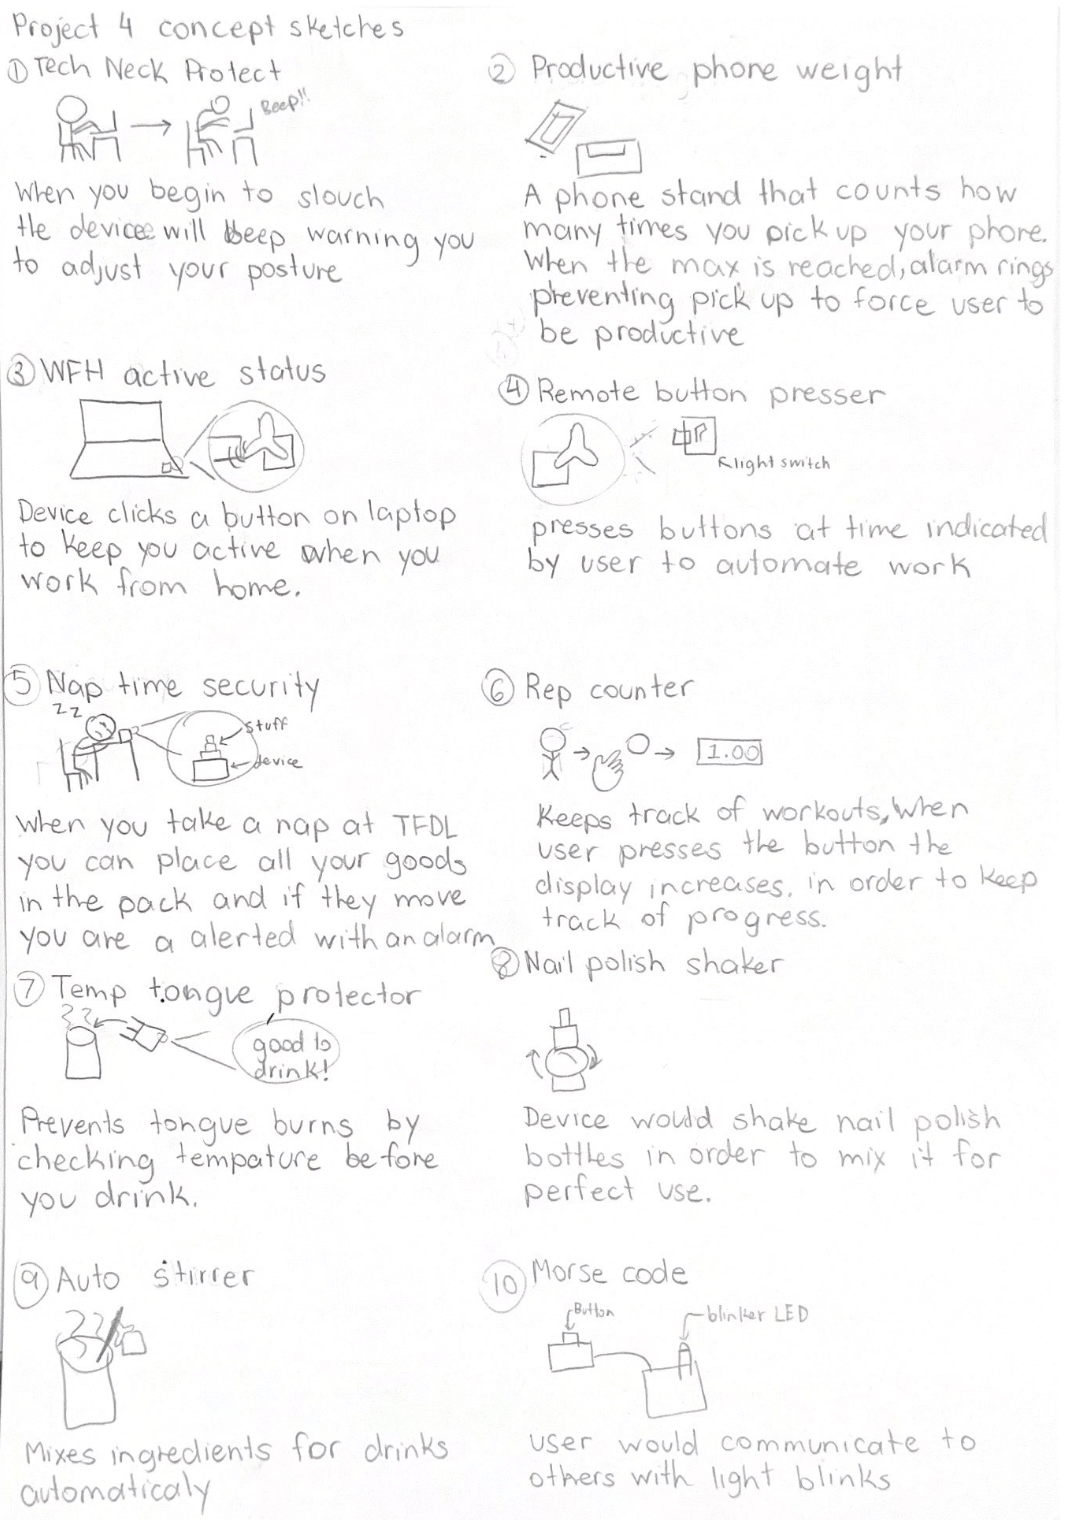 Project 4 concept sketches
① Tech Neck Protect
Beep!!
When you begin to slouch
the devicee will beep warning you
to adjust your posture
② Productive phone weight
A phone stand that counts how
many times you pick up your phone.
When the max is reached, alarm rings
preventing pick up to force user to
be productive
③ WFH active status
Device clicks a button on laptop
to keep you active when you
work from home.
④ Remote button presser
light switch
presses buttons at time indicated
by user to automate work
⑤ Nap time security
zz
stuff
device
When you take a nap at TFDL
you can place all your goods
in the pack and if they move
you are a alerted with an alarm
⑥ Rep counter
1.00
Keeps track of workouts, when
user presses the button the
display increases. in order to keep
track of progress.
⑦ Temp tongue protector
good to
drink!
Prevents tongue burns by
checking tempature before
you drink.
⑧ Nail polish shaker
Device would shake nail polish
bottles in order to mix it for
perfect use.
⑨ Auto stirrer
Mixes ingredients for drinks
automaticaly
⑩ Morse code
Button
blinker LED
user would communicate to
others with light blinks